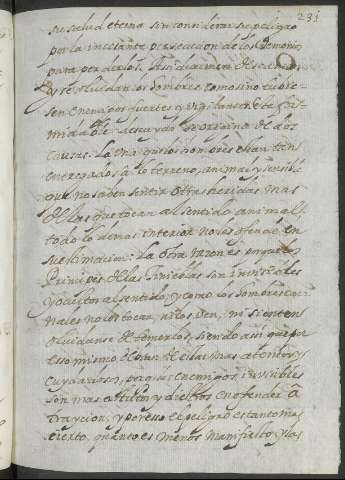 231
su salud eterna sin considerar su peligro
por la incesante persecucion de los Demonios
para perderlos. Assi duermen
y se olvidan los hombres como sino tubie-
sen enemigos fuertes y vigilantes. esta
descuydo se origina de dos
causas. La una que los hombres estan tan
entregados a lo terreno, animal y sensible
que no saben sentir otras heridas mas
de las que tocan al sentido animal,
todo lo demas interior no los ofende en
su estimacion. La otra razon es porque los
Principes de las tinieblas son invisibles
y ocultos al sentido, y como los hombres car-
nales no los tocan, ni los ven, ni sienten
olvidanse de temerlos, siendo assi que por
eso mismo devian de estar mas atentos y
cuydadosos, porque los enemigos invisibles
son mas astutos y diestros en ofender a
traycion, y por esso el peligro es tanto mas
cierto, quanto es menos manifiesto, y las